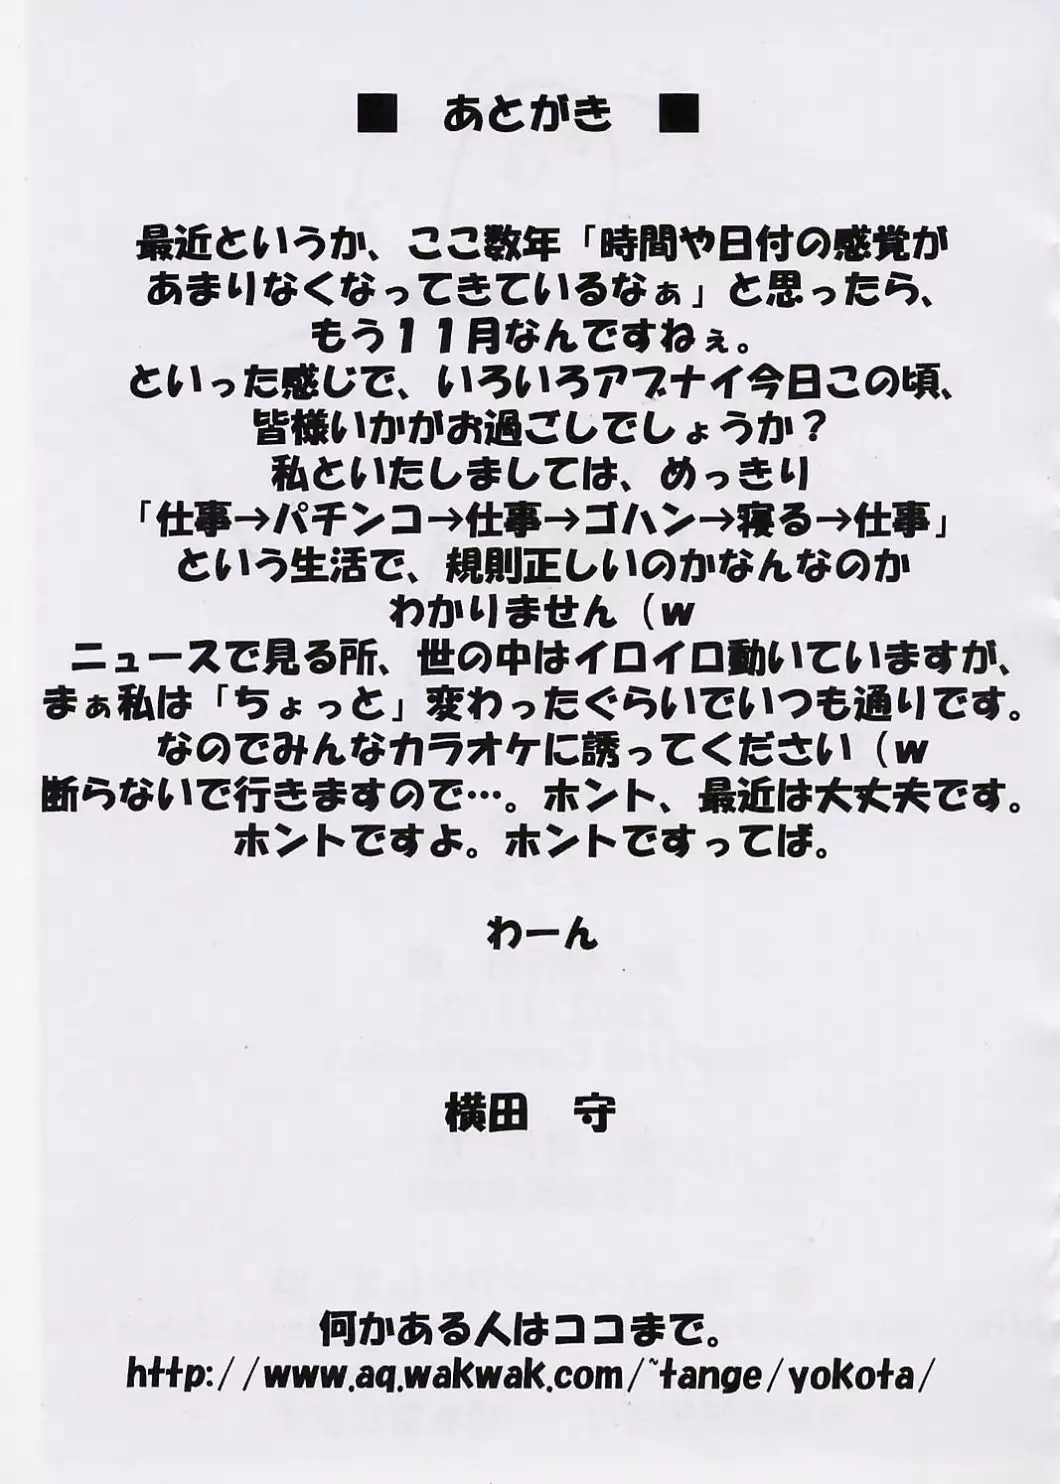 ■ あとがき ■
最近というか、ここ数年「時間や日付の感覚が
あまりなくなってきているなぁ」と思ったら、
もう11月なんですねぇ。
といった感じで、いろいろアブナイ今日この頃、
皆様いかがお過ごしでしょうか？
私といたしましては、めっきり
「仕事→パチンコ→仕事→ゴハン→寝る→仕事」
という生活で、規則正しいのかなんなのか
わかりません（w
ニュースで見る所、世の中はイロイロ動いていますが、
まぁ私は「ちょっと」変わったぐらいでいつも通りです。
なのでみんなカラオケに誘ってください（w
断らないで行きますので…。ホント、最近は大丈夫です。
ホントですよ。ホントですってば。
わーん
横田　守
何かある人はココまで。
http://www.aq.wakwak.com/~tange/yokota/